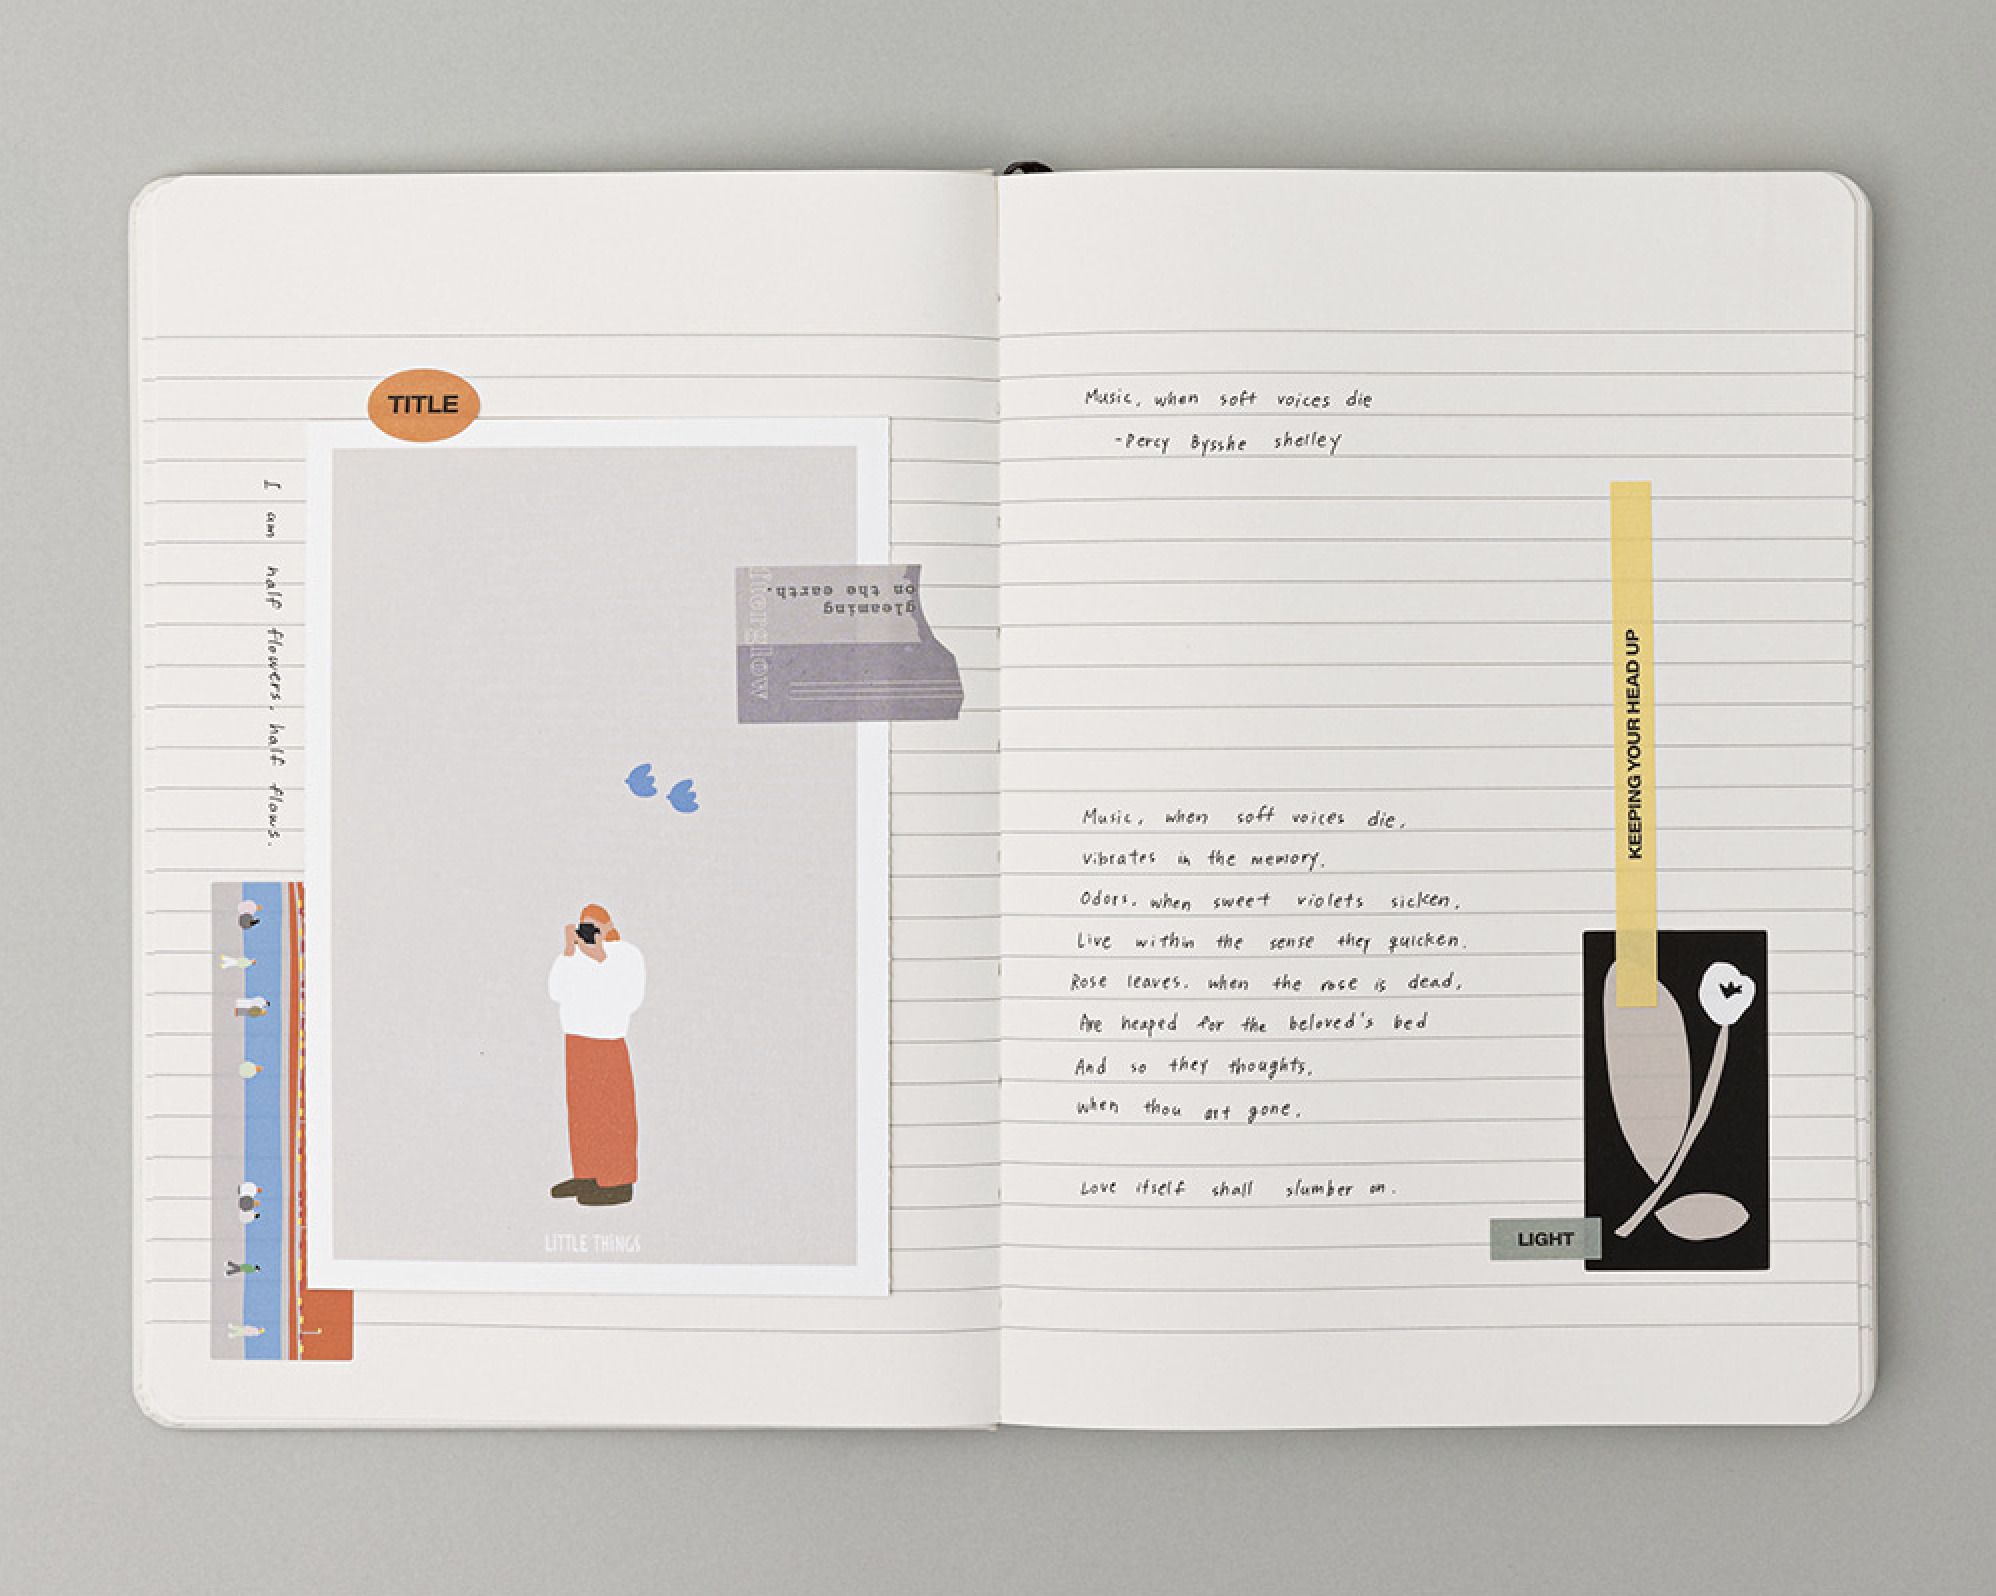 TITLE
I am half flowers, half flows.
on the earth.
gleaming
LITTLE THINGS
Music, when soft voices die
-Percy Bysshe shelley
KEEPING YOUR HEAD UP
Music, when soft voices die,
vibrates in the memory.
Odors, when sweet violets sicken,
Live within the sense they quicken.
Rose leaves, when the rose is dead,
Are heaped for the beloved's bed
And so they thoughts,
when thou art gone,
Love itself shall slumber on.
LIGHT